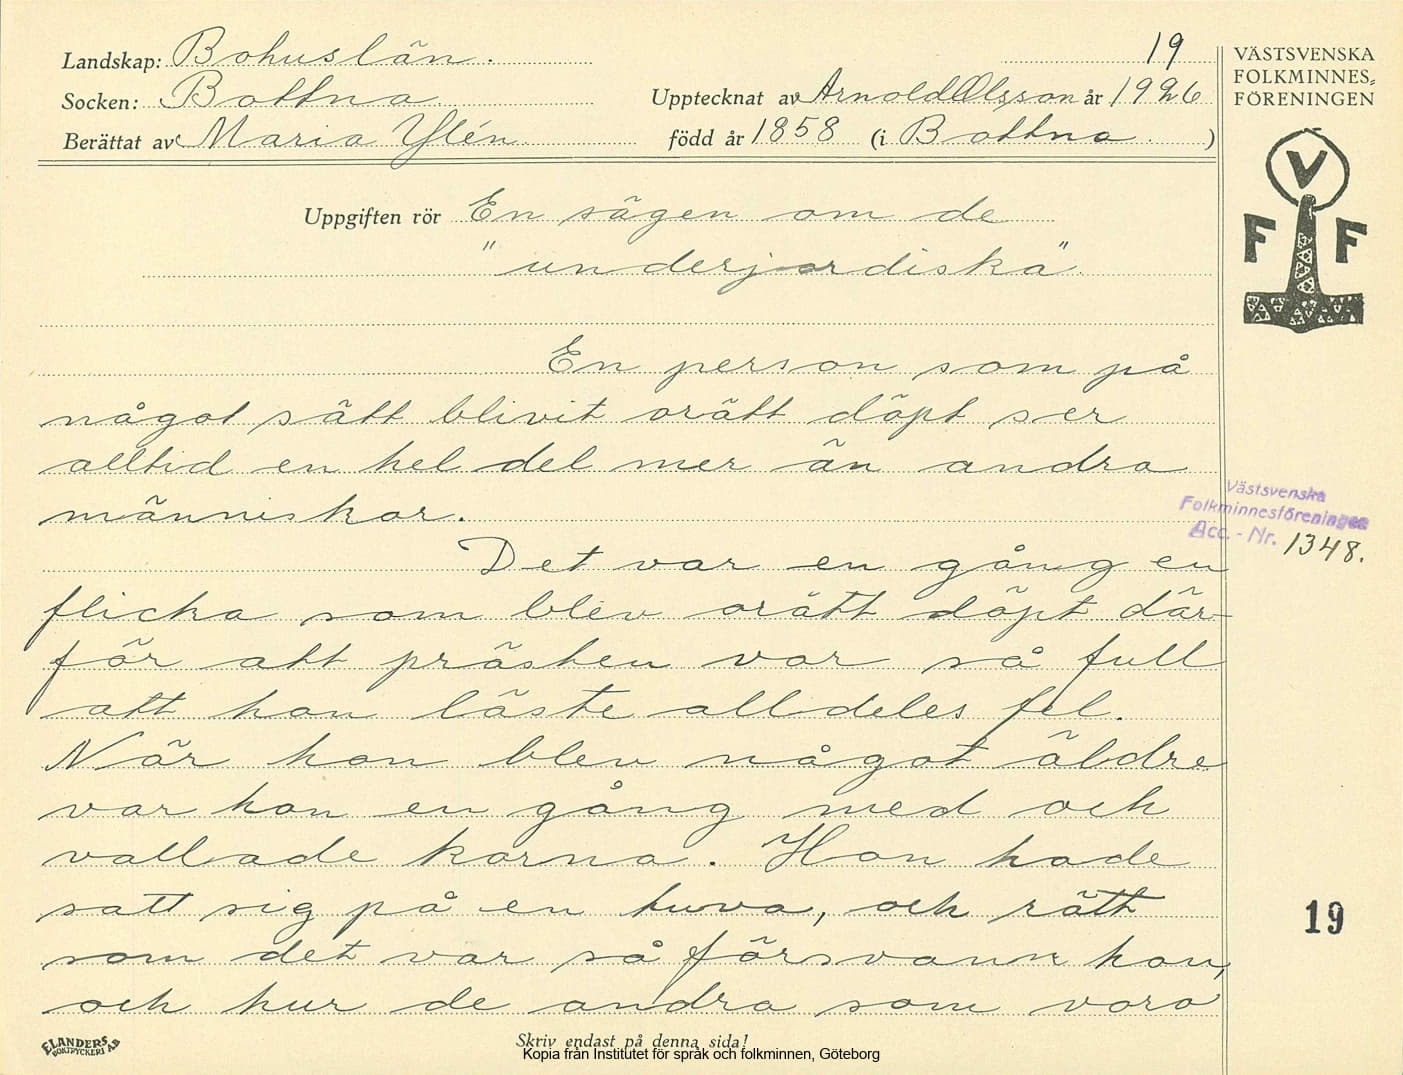 19
Landskap: Bohuslän.
Socken: Bottna
Upptecknat av Arnold Olsson år 1926
Berättat av Maria Ylén.
född år 1858 (i Bottna.)
VÄSTSVENSKA
FOLKMINNES-
FÖRENINGEN
V
F F
Uppgiften rör En sägen om de
"underjordiska".
En person som på
något sätt blivit orätt döpt ser
alltid en hel del mer än andra
människor.
Det var en gång en
flicka som blev orätt döpt där-
för att prästen var så full
att han läste alldeles fel.
När hon blev något äldre
var hon en gång med och
vallade korna. Hon hade
satt sig på en tuva, och rätt
som det var så försvann hon,
och hur de andra som voro
Västsvenska
Folkminnesföreningen
Acc.-Nr. 1348.
19
ELANDERS
BOKTRYCKERI AB
Skriv endast på denna sida!
Kopia från Institutet för språk och folkminnen, Göteborg